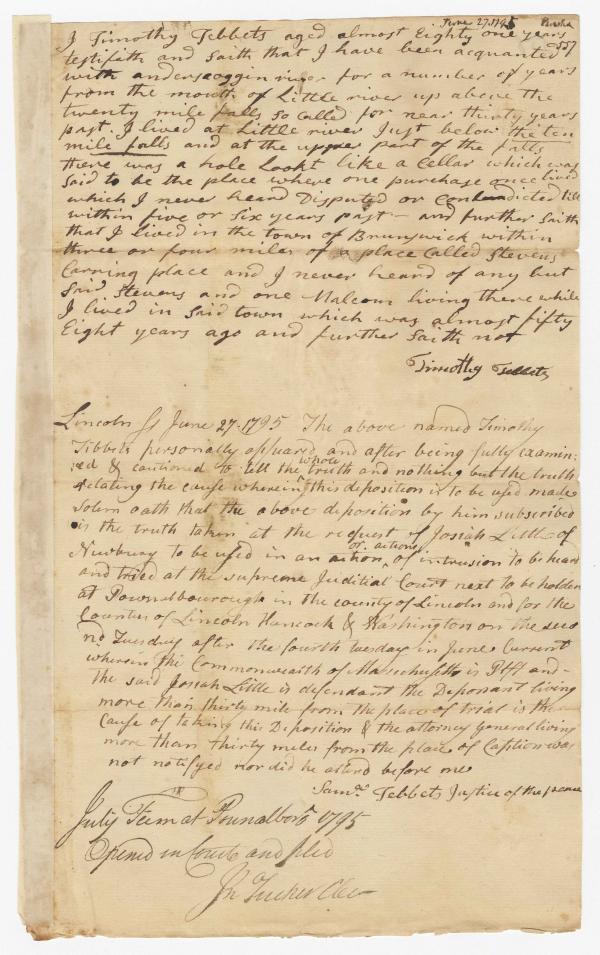 June 27. 1795
557
I Timothy Tebbets aged almost Eighty one years
testifath and Saith that I have been acquanted
with anderscoggin river for a number of years
from the mouth of Little river up above the
twenty mile falls so Called for near thirty years
past. I lived at Little river Just below the ten
mile falls and at the upper part of the falls
there was a hole Lookt like a Cellar which was
Said to be the place where one purchase once lived
which I never heard Disputed or Contradicted till
within five or Six years past – and further Saith
that I lived in the town of Brunswick within
three or four miles of a place Called Stevens
Carring place and I never heard of any but
Said Stevens and one Malcom living there while
I lived in Said town which was almost fifty
Eight years ago and further Saith not
Timothy Tebbets
Lincoln Ss June 27. 1795 The above named Timothy
Tibbets personally appeared and after being fully examin:
ed & cautioned to tell the whole truth and nothing but the truth
relating the cause wherein this deposition is to be used made
Solem oath that the above deposition by him subscribed
is the truth taken at the request of Josiah Little of
Newbury to be used in an action or actions of intrusion to be heard
and tried at the supreme Judicial Court next to be holden
at Pownalbourough in the county of Lincoln and for the
Counties of Lincoln Hancock & Washington on the seco
nd Tuesday after the fourth tuesday in June Current
wherein the Commonwealth of Massachusetts is Ptff and –
the said Josiah Little is defendant the Deponant living
more than thirty mile from the place of trial is the
Cause of taking this Deposition & the attorney General living
more than thirty miles from the place of Caption was
not notifyed nor did he attend before me
Samll Tebbets Justice of the peace
July Term at Pownalboro 1795
Opened in Court and filed
Jn Tucker Cler